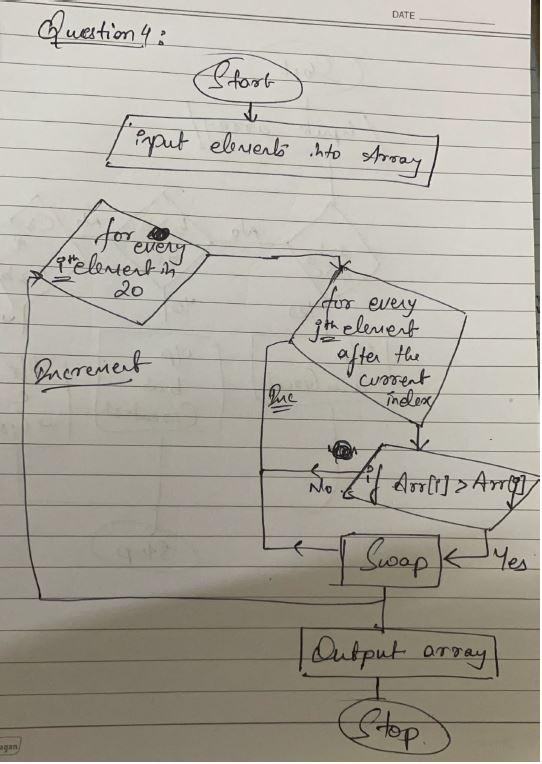 DATE
Question 4:
Start
input elements into Array
for every
ith element in
20
for every
jth element
after the
current
index
Increment
Inc
if Arr[i] > Arr[j]
No
Yes
Swap
Output array
Stop.